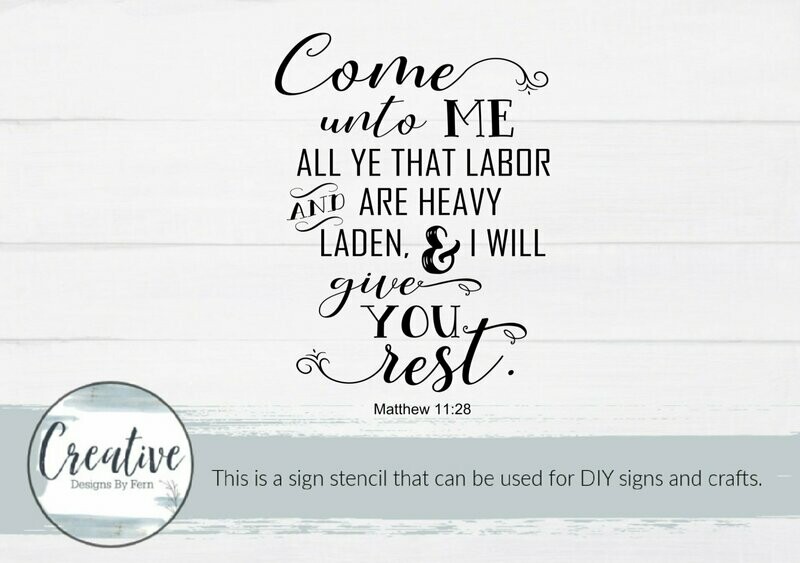 Come
unto ME
ALL YE THAT LABOR
AND ARE HEAVY
LADEN, & I WILL
give
YOU
rest.
Matthew 11:28
Creative
Designs By Fern
This is a sign stencil that can be used for DIY signs and crafts.